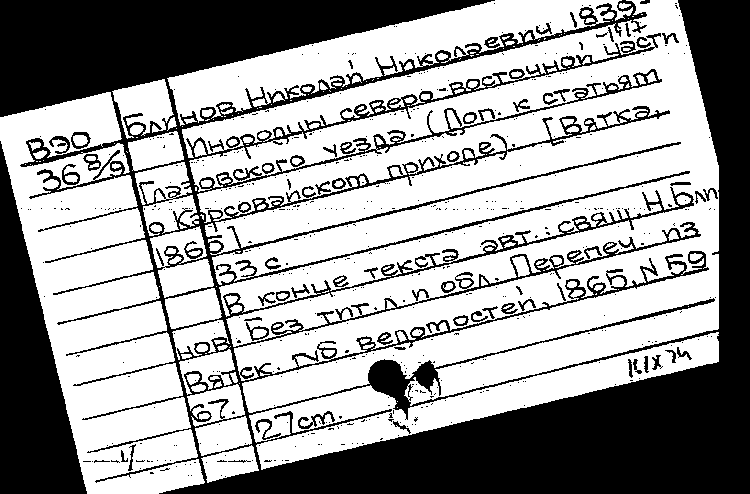 Блинов, Николай Николаевич, 1839-
-1917
ВЭО
36 8/9
Инородцы северо-восточной части
Глазовского уезда. (Доп. к статьям
о Карсовайском приходе). [Вятка,
1865].
33 с.
В конце текста авт.: свящ. Н. Бли-
нов. Без тит. л. и обл. Перепеч. из
Вятск. губ. ведомостей, 1865, N 59-
67.
27 cm.